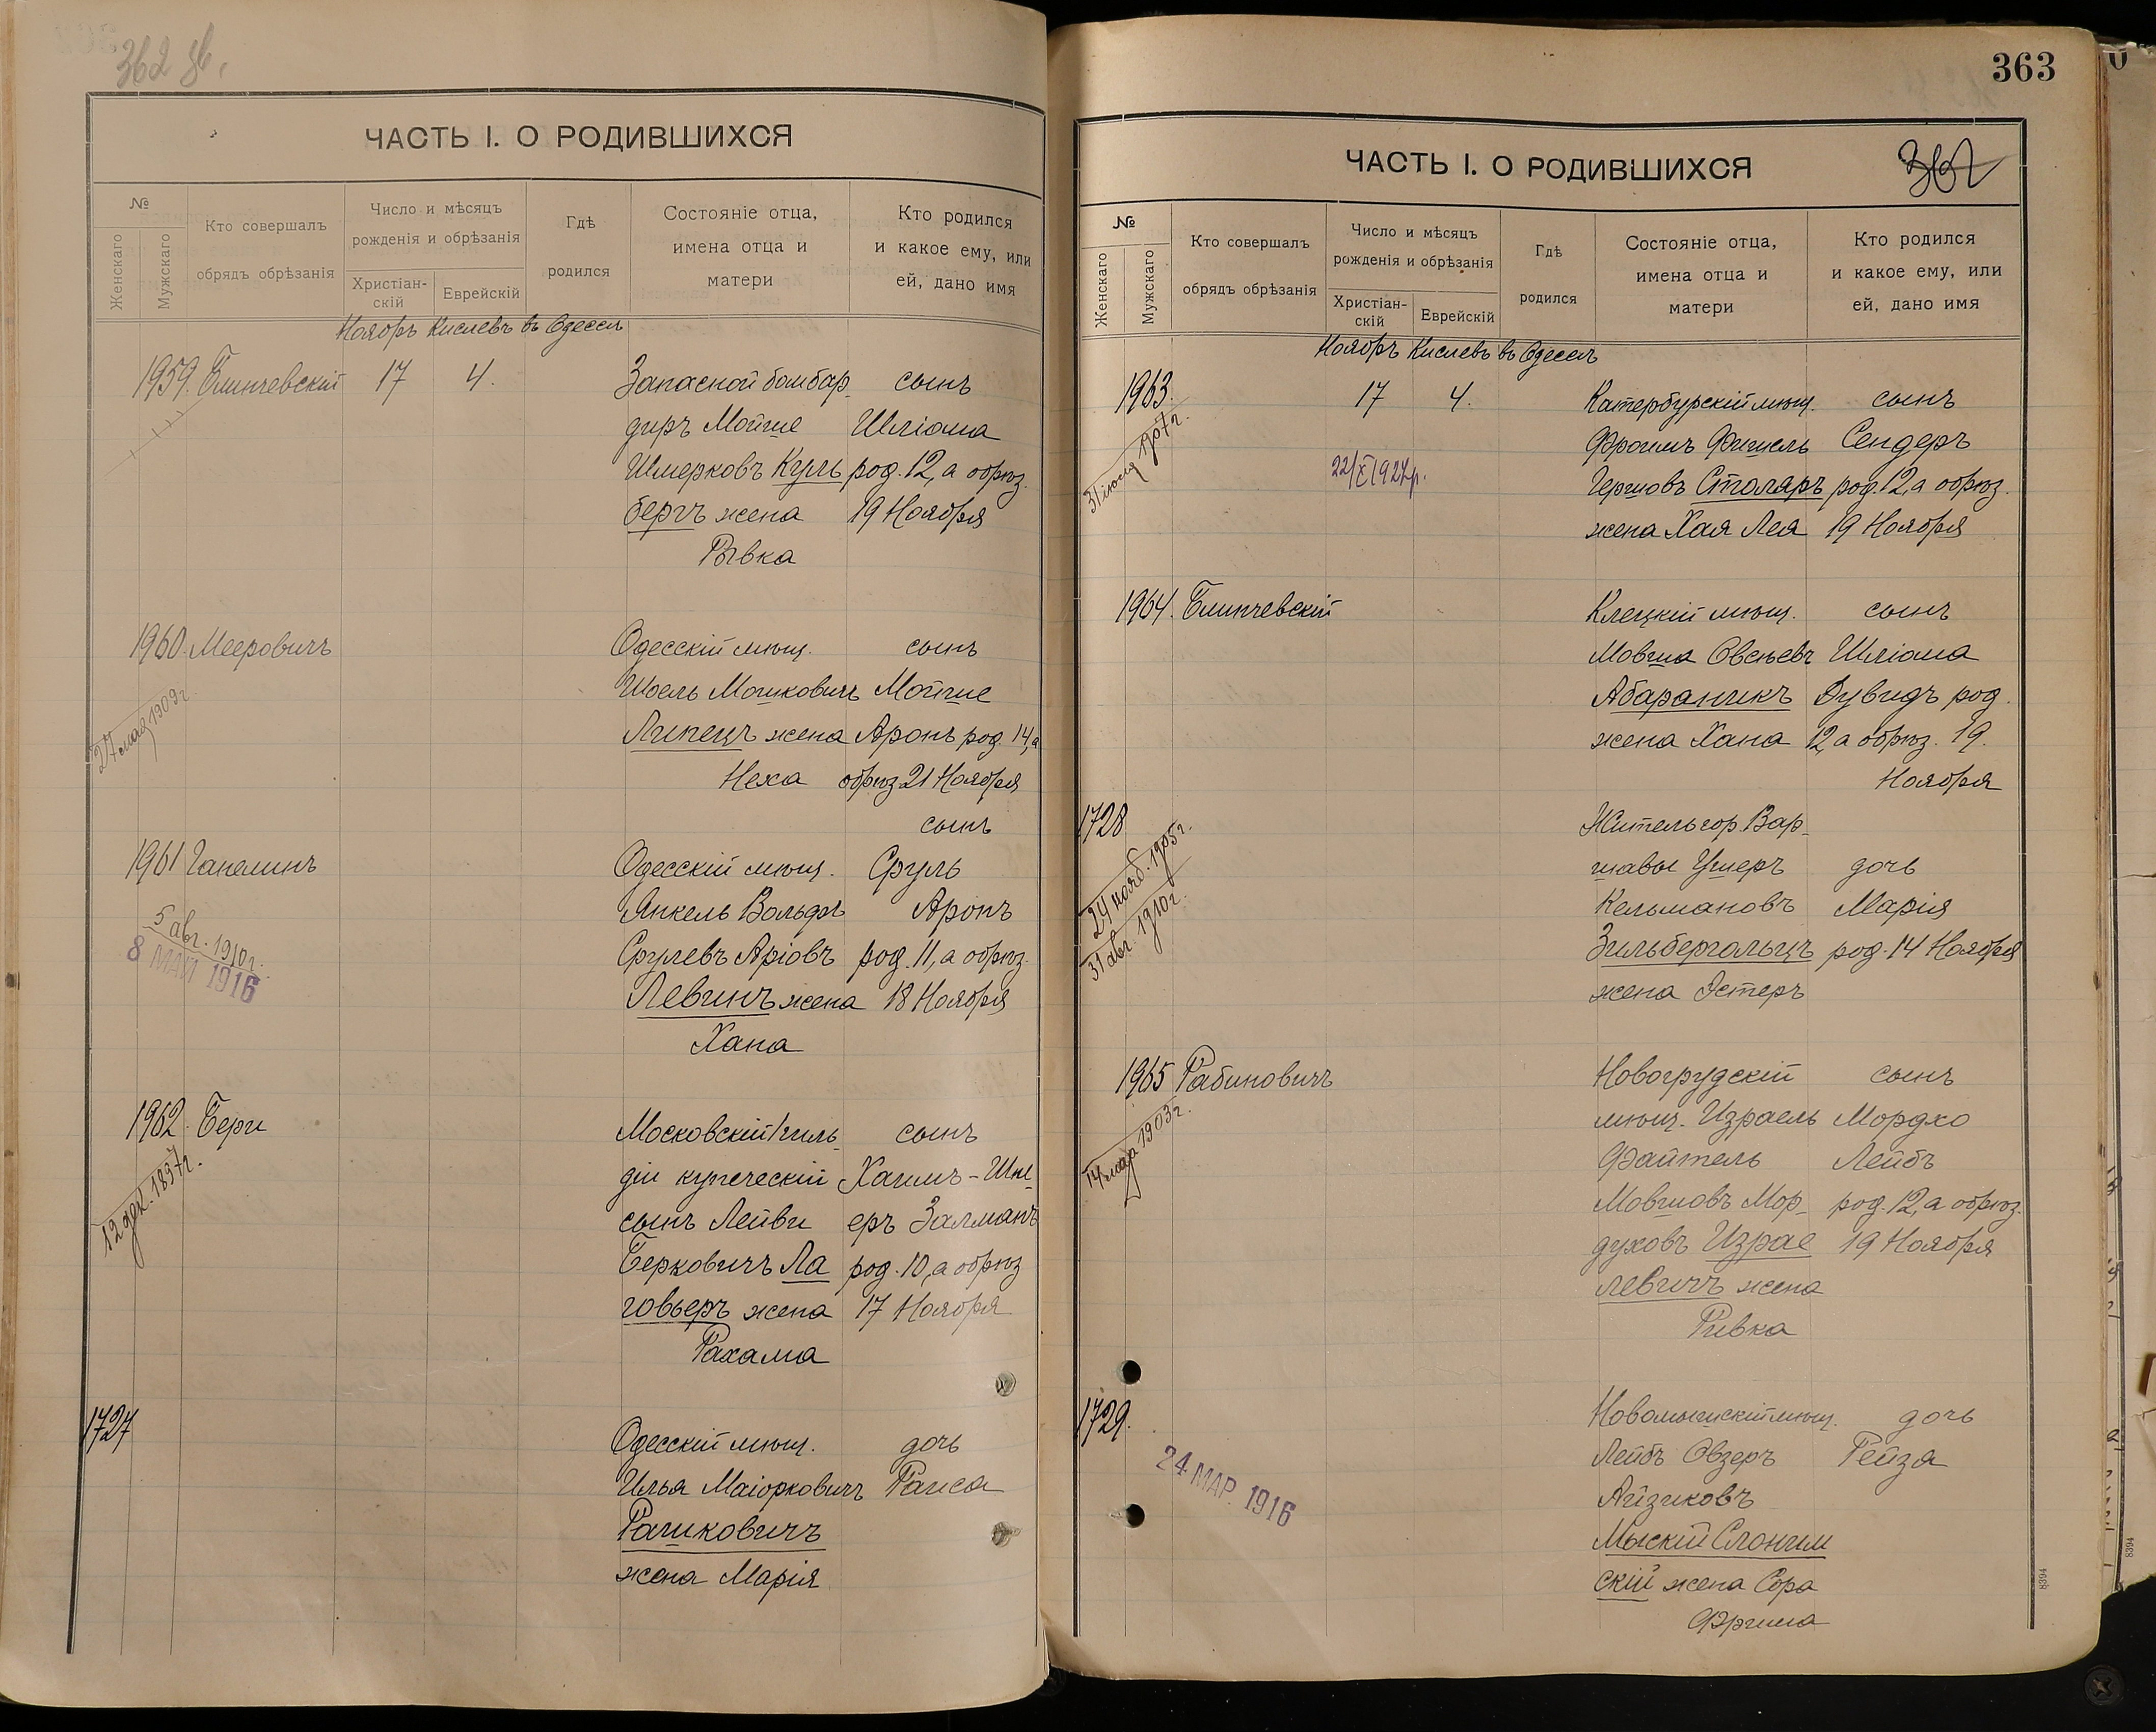 362 об.
ЧАСТЬ I. О РОДИВШИХСЯ
№
Женскаго
Мужскаго
Кто совершалъ
обрядъ обрѣзанія
Число и мѣсяцъ
рожденія и обрѣзанія
Христіан-
скій
Еврейскій
Гдѣ
родился
Состояніе отца,
имена отца и
матери
Кто родился
и какое ему, или
ей, дано имя
Ноябрь Кислевъ въ Одессѣ
1959. Блинчевскій 17 4. Запасной бомбар- сынъ
диръ Мойше Шліома
Шмерковъ Куль род. 12, а обрѣз.
бергъ жена 19 Ноября
Рывка
1960. Мееровичъ Одесскій мѣщ. сынъ
27 мая 1909 г.
Шоель Мошковичъ Мойше
Липецъ жена Аронъ род. 14, а
Неха обрѣз 21 Ноября
сынъ
1961 Гапелинъ Одесскій мѣщ. Сруль
5 авг. 1910 г.
8 МАЙ 1916
Янкель Вольфъ Аронъ
Срулевъ Аріовъ род. 11, а обрѣз.
Левинъ жена 18 Ноября
Хана
1962. Берги Московскій 1 гиль- сынъ
12 дек. 1897 г.
діи купеческій Хаимъ-Шне-
сынъ Лейви еръ Залманъ
Берковичъ Ла род. 10, а обрѣз
говьеръ жена 17 Ноября
Рахама
1727 Одесскій мѣщ. дочь
Илья Маіорковичъ Раиса
Рашковичъ
жена Марія
363
ЧАСТЬ I. О РОДИВШИХСЯ
362
№
Женскаго
Мужскаго
Кто совершалъ
обрядъ обрѣзанія
Число и мѣсяцъ
рожденія и обрѣзанія
Христіан-
скій
Еврейскій
Гдѣ
родился
Состояніе отца,
имена отца и
матери
Кто родился
и какое ему, или
ей, дано имя
Ноябрь Кислевъ въ Одессѣ
1963. 17 4. Катербурскій мѣщ. сынъ
31 іюля 1907 г.
22/XI 1927 р.
Фроимъ Фишель Сендеръ
Гершовъ Столяръ род. 12, а обрѣз.
жена Хая Лея 19 Ноября
1964. Блинчевскій Клецкій мѣщ. сынъ
Мовша Овсѣевъ Шліома
Абаранчикъ Дувидъ род.
жена Хана 12, а обрѣз. 19.
Ноября
1728 Житель гор. Вар-
24 нояб. 1905 г.
31 авг. 1910 г.
шавы Ушеръ дочь
Кельмановъ Марія
Зильбергольцъ род. 14 Ноября
жена Эстеръ
1965 Рабиновичъ Новогрудскій сынъ
14 мар 1903 г.
мѣщ. Израель Мордко
Файтель Лейбъ
Мовшовъ Мор- род. 12, а обрѣз.
духовъ Израе 19 Ноября
левичъ жена
Ривка
1729. Новомышскій мѣщ. дочь
24 МАР. 1916
Лейбъ Овзеръ Рейза
Айзиковъ
Мыскій Слоним
скій жена Сора
Фрима
8394
8394